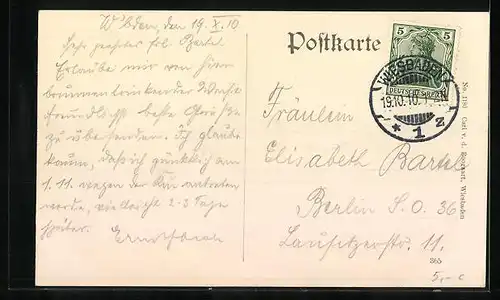 W'baden, den 19. X. 10
Sehr geehrtes Frl. Bartel
Erlaube mir von hier
brunnentrinkender Weise
freundlichst beste Grüsse
zu übersenden. Ich glaube
kaum, dass ich pünktlich am
1. 11. wegen der Kur antreten
werde, vielleicht 2-3 Tage
später.
Postkarte
5 5
DEUTSCHES REICH
WIESBADEN
19.10.10.
* 1 z
Fräulein
Elisabeth Bartel
Berlin S.O. 36
Lausitzerstr. 11.
365
5,-
No. 1180 Carl v. d. Boogaart, Wiesbaden